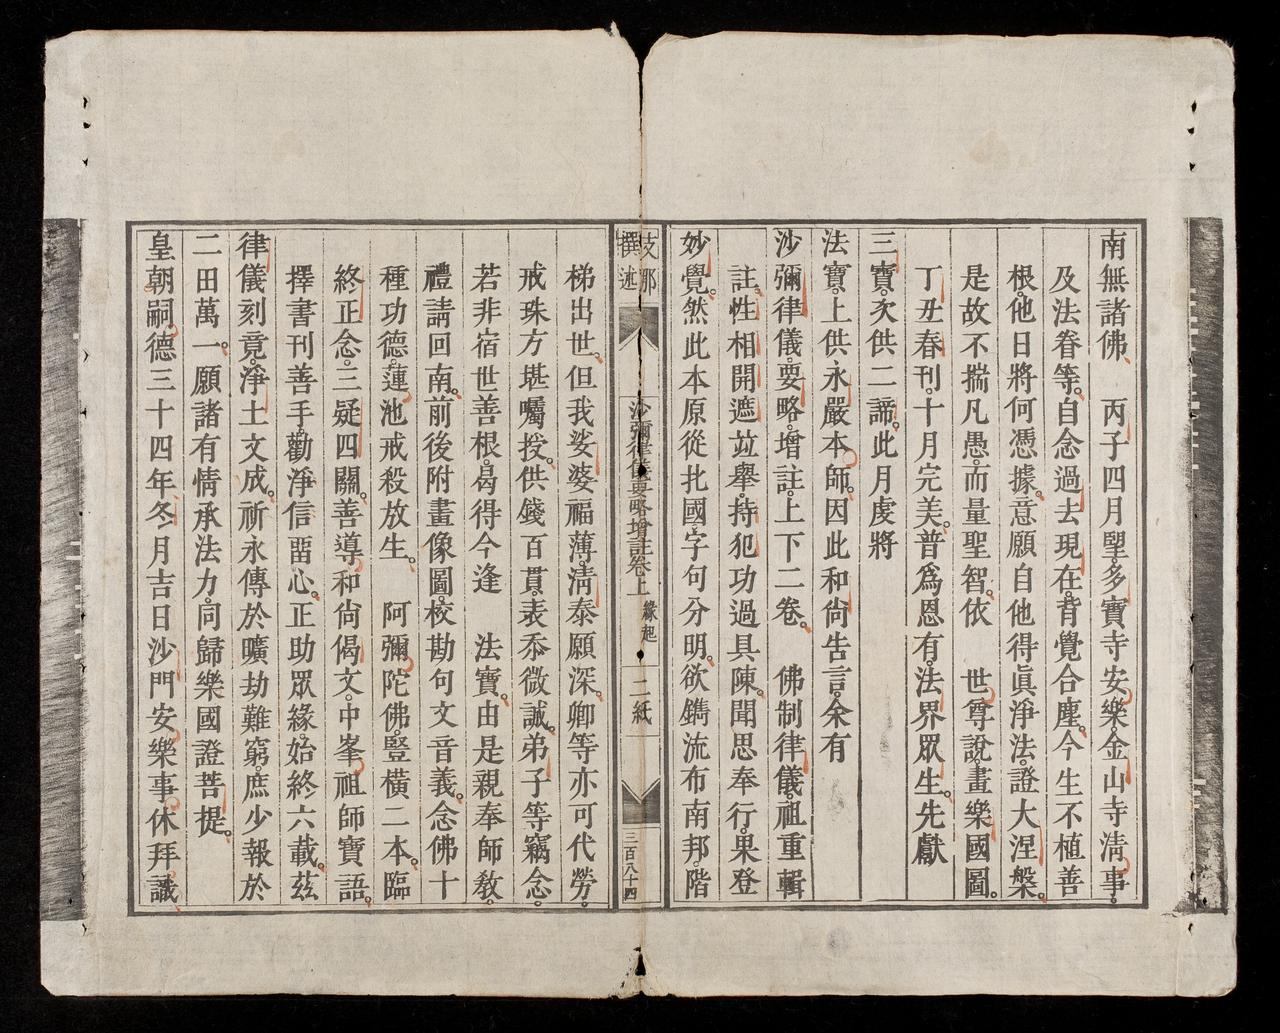 南無諸佛　丙子四月朢。多寶寺安樂。金山寺清事。
及法眷等。自念過去現在。背覺合塵。今生不植善
根。他日將何憑據。意願自他得眞淨法。證大涅槃。
是故不揣凡愚。而量聖智。依　世尊說。畫樂國圖。
丁丑春刊。十月完美。普爲恩有。法界眾生。先獻
三寶。次供二諦。此月虔將
法寶。上供永嚴本師。因此和尙告言。余有
沙彌律儀。要略。增註。上下二卷。　佛制律儀。祖重輯
註。性相開遮竝舉。持犯功過具陳。聞思奉行。果登
妙覺。然此本原從北國。字句分明。欲鐫流布南邦。階
支那
撰述
沙彌律儀要略增註卷上 緣起
二紙
三百八十四
梯出世。但我娑婆福薄。清泰願深。卿等亦可代勞。
戒珠方堪囑授。供錢百貫。表忝微誠。弟子等竊念。
若非宿世善根。曷得今逢　法寶。由是親奉師敎。
禮請回南。前後附畫像圖。校勘句文音義。念佛十
種功德。蓮池戒殺放生。　阿彌陀佛。豎橫二本。臨
終正念。三疑四關。善導和尙偈文。中峯祖師寶語。
擇書刊善手。勸淨信畱心。正助眾緣。始終六載。茲
律儀刻竟。淨土文成。祈永傳於曠劫難窮。庶少報於
二田萬一。願諸有情承法力。同歸樂國證菩提。
皇朝嗣德三十四年冬月吉日沙門安樂事休拜識